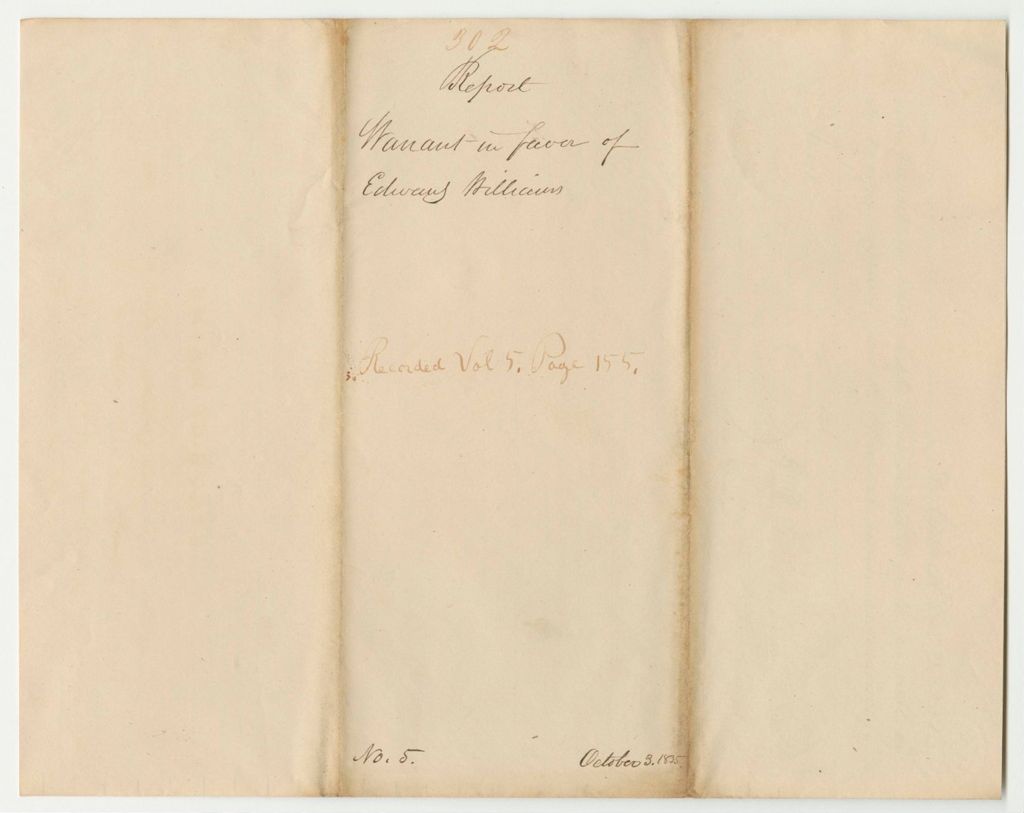 302
Report
Warrant in favor of
Edward Williams
Recorded Vol 5. Page 155.
No. 5.
October 3. 1835